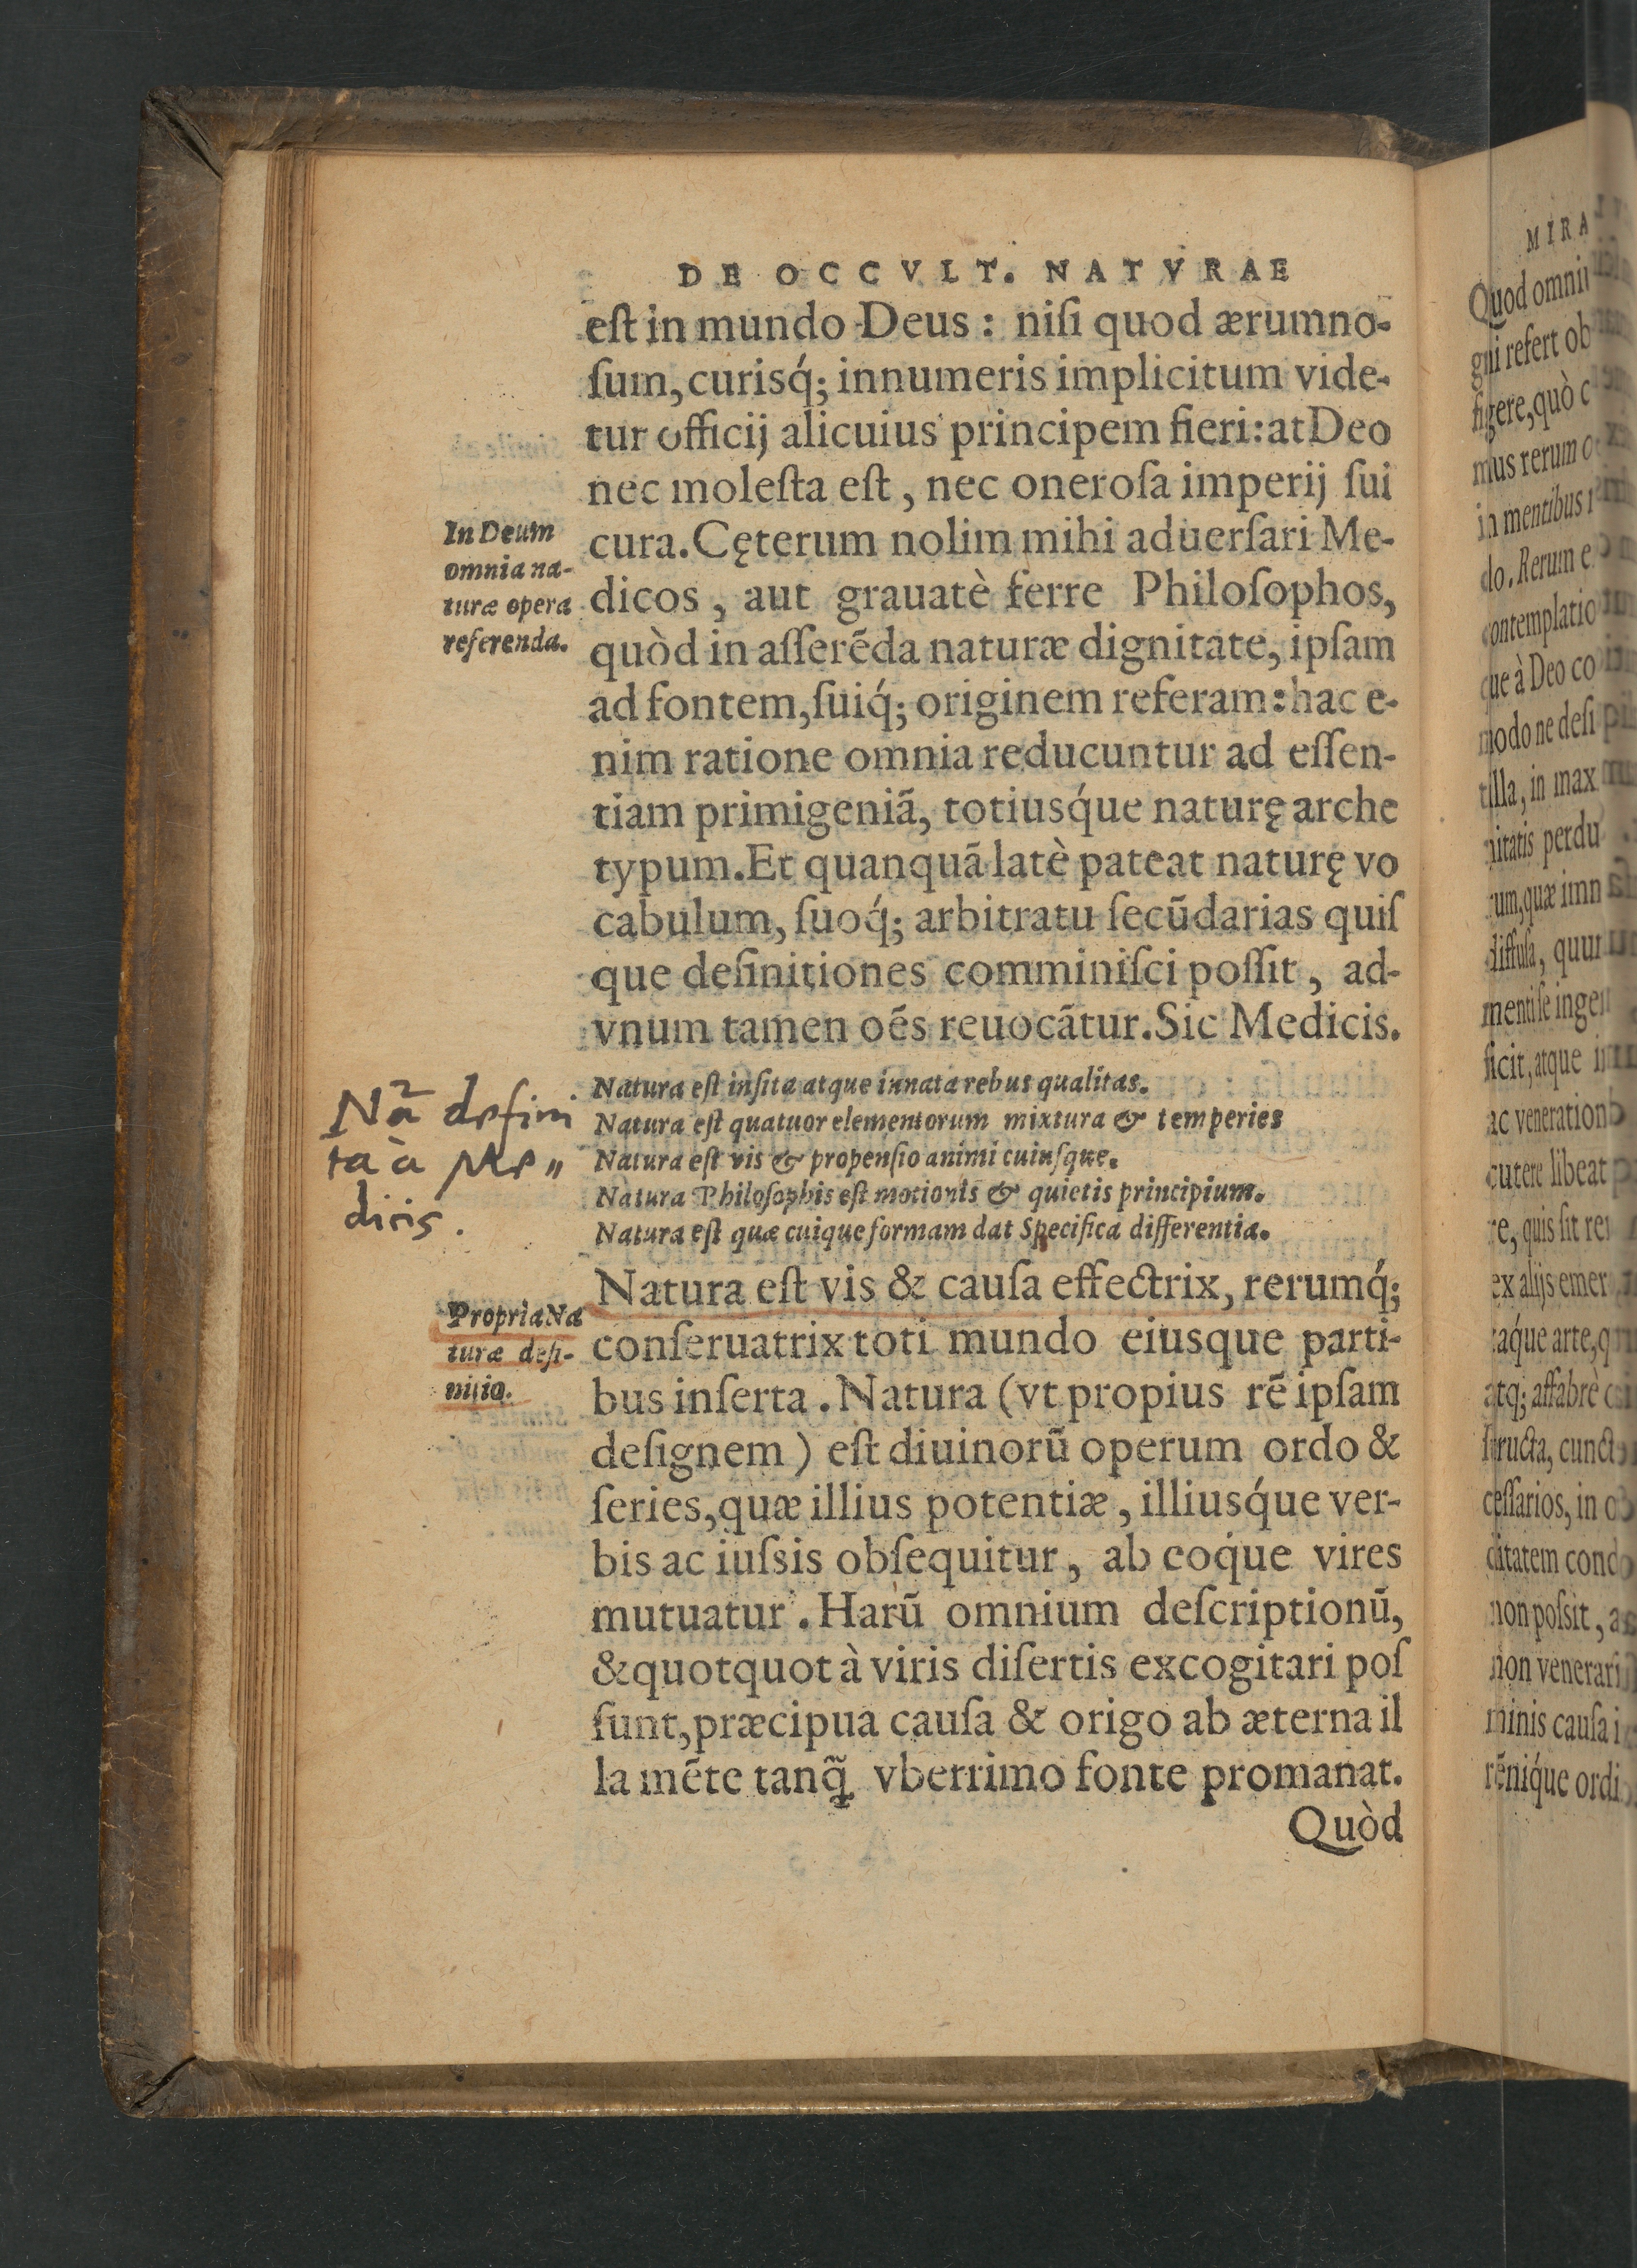 DE OCCVLT. NATVRAE
eſt in mundo Deus: niſi quod ærumno-
ſum, curisq́; innumeris implicitum vide-
tur officij alicuius principem fieri: at Deo
nec moleſta eſt, nec oneroſa imperij ſui
In Deum
omnia na-
turæ opera
referenda.
cura. Cęterum nolim mihi aduerſari Me-
dicos, aut grauatè ferre Philoſophos,
quòd in aſſerẽda naturæ dignitate, ipſam
ad fontem, ſuiq́; originem referam: hac e-
nim ratione omnia reducuntur ad eſſen-
tiam primigeniã, totiusq́ue naturę arche
typum. Et quanquã latè pateat naturę vo
cabulum, ſuoq́; arbitratu ſecũdarias quiſ
que definitiones comminiſci poſſit, ad-
vnum tamen oẽs reuocãtur. Sic Medicis.
Natura eſt inſita atque innata rebus qualitas.
Natura eſt quatuor elementorum mixtura & temperies
Natura eſt vis & propenſio animi cuiuſque.
Natura Philoſophis eſt motionis & quietis principium.
Natura eſt quæ cuique formam dat Specifica differentia.
Nã defini
ta à Me„
dicis.
Natura eſt vis & cauſa effectrix, rerumq́;
Propria Na
turæ defi-
nitio.
conſeruatrix toti mundo eiusque parti-
bus inſerta. Natura (vt propius rẽ ipſam
deſignem) eſt diuinorũ operum ordo &
ſeries, quæ illius potentiæ, illiusq́ue ver-
bis ac iuſsis obſequitur, ab eoq́ue vires
mutuatur. Harũ omnium deſcriptionũ,
& quotquot à viris diſertis excogitari poſ
ſunt, præcipua cauſa & origo ab æterna il
la mẽte tanq̃ vberrimo fonte promanat.
Quòd
MIRA
Quod omniu
gni refert ob
figere, quò c
mus rerum o
in mentibus
do. Rerum e
contemplatio
que à Deo co
modo ne deſi
tilla, in max
nitatis perdu
rum, quæ imn
diffuſa, quu
mentiſe ingen
ficit, atque i
ac veneration
cutere libeat
re, quis ſit re
ex alijs emer
taq́ue arte, q
atq; affabrè c
ſtructa, cunct
ceſſarios, in o
ditatem cond
non poſsit, a
non venerari
minis cauſa i
rẽniq́ue ordi